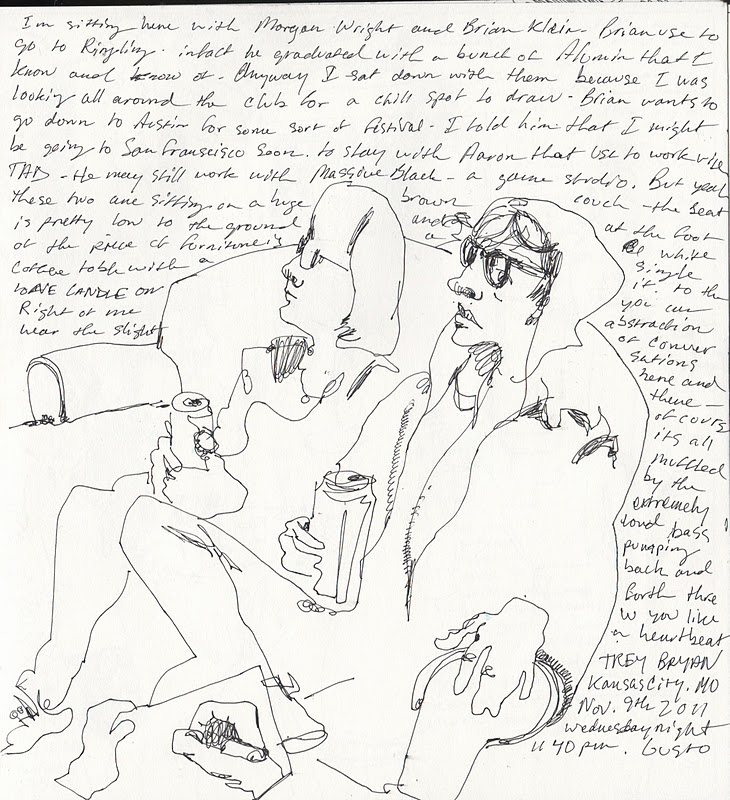 I'm sitting here with Morgan Wright and Brian Klein - Brian use to
go to Ringling. infact he graduated with a bunch of Alumin that I
know and know of - Anyway I sat down with them because I was
looking all around the club for a chill spot to draw - Brian wants to
go down to Austin for some sort of festival - I told him that I might
be going to San Franscisco soon. to stay with Aaron that use to work with
TAD - He may still work with Massive Black - a game studio. But yeah
these two are sitting on a huge brown couch - the seat
is pretty low to the ground and at the foot
of the piece of furniture is a white
coffee table with a single
WAVE CANDLE ON it. to the
Right of me you can
hear the slight abstraction
of conver
sations
here and
there -
of cours
its all
muffled
by the
extremely
loud bass
pumping
back and
forth thro
you like
a heartbeat
TREY BRYAN
Kansas City, MO
Nov. 9th 2011
Wednesday night
11 40 pm. Gusto